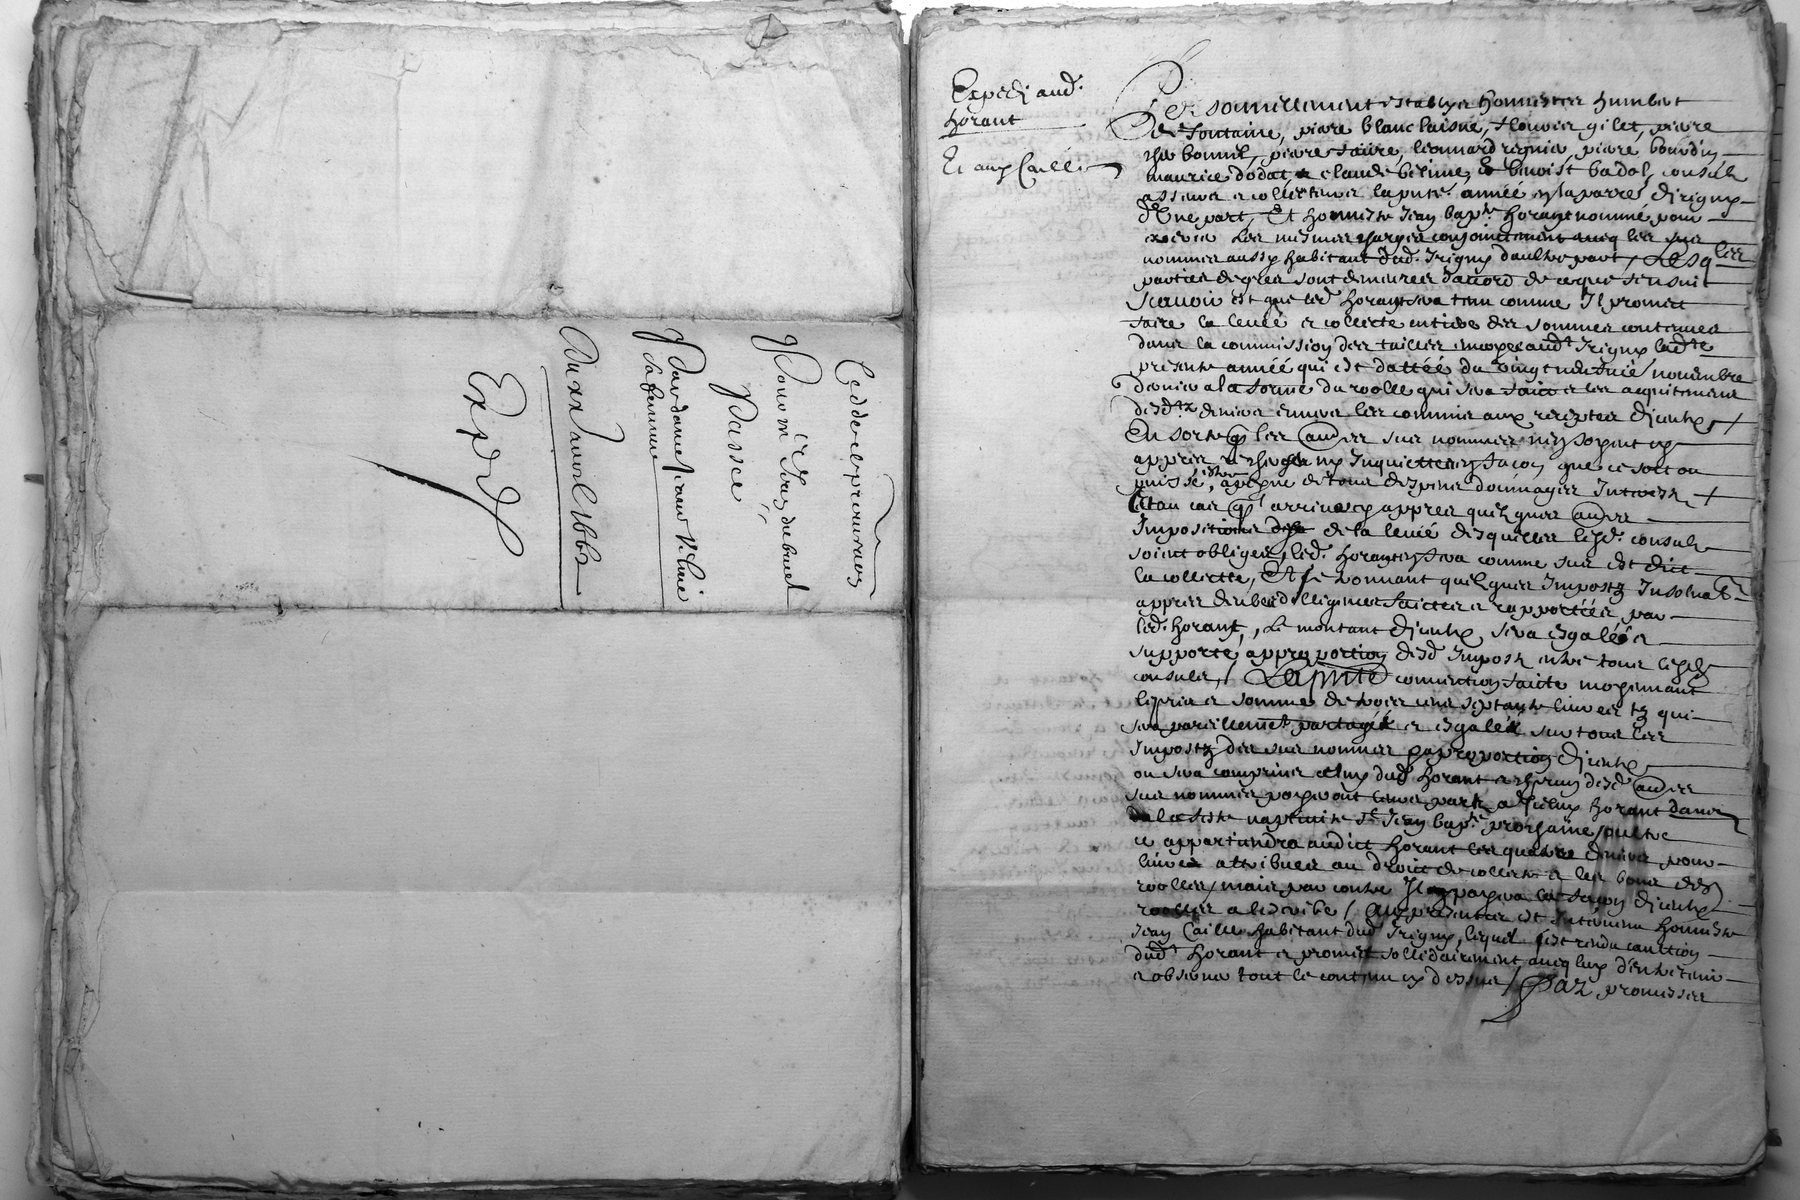 Cedde et procuraon
Pour m.e
Passée
Par danel
sa femme
Du xx Avril 1662
Exped
Expedi aud.
horant
Et aux Caille
Personnellement establyes honnestes humbert
de fontaine, pierre blanc laisné, gilet, pierre
bonnet, pierre faure, leonnard regnie, pierre bourdin
maurice dodat claude et benoist badol, consulz
et collecteurs la pnte. année en la parre. dirigny
d'Une part, Et honneste Jean bap.te horant nommé pour
exercer les mesmes charges conjoinctement avecq les sus
nommes aussy habitant dud. Irigny d'aultre part / Lesq.lles
parties de gres sont demeurees d'accord de ce que s'ensuit
Scavoir est que led. horant sera tenu comme Il promect
faire la levée et collecte entiere des sommes contenues
dans la commission des tailles aud.t Irigny lad.te
presente année qui est dattée du vingt novembre
dernier a la forme du roolle qui sera faict et les acquitement
desd.tz deniers es commis aux receptes d'iceulx /
En sorte q. les aultres sus nommes n'en soyent cy
appres ny Inquiettes en facon que ce soit ou
puisse estre, a peyne de tous despens dommages Interestz
Et au cas q. arrivast cy appres quelques aultres
Impositions de la levée desquelles lesd. consulz
soient obliges, led. horant en fera comme sus est dict
la collecte, Et se donnant quelques Impostz Insolvab.
appres deubes dilligences faictes et rapportées par
led. horant, Le montant d'iceulx sera esgalée et
supporté approportion desd Impostz entre tous lesd
consulz, / La pnte convention faicte moyennant
le pris et somme de trois cens septante livres tz qui
sera pareillement partagée et esgalée sur tous les
Impostz des sus nommes a proportion d'iceulx
ou sera comprins celluy dud. horant et chacun desd. aultres
sus nommes payeront leurs partz a Icelluy horant dans
la feste nativité St Jean bap.te prochaine / oultre
ce appartiendra audict horant les quatre deniers pour
livres attribues au droict de collecte et les bons des
roolles / mais par contre Il payera la facon d'iceulx
roolles a lescribe / Aux presentes est Intervenu honneste
Jean Caille habitant dud. Irigny, lequel s'est rendu caultion
dud.t horant et promect sollidairement avecq luy d'entretenir
et observer tout le contenu cy dessus / Par promesses